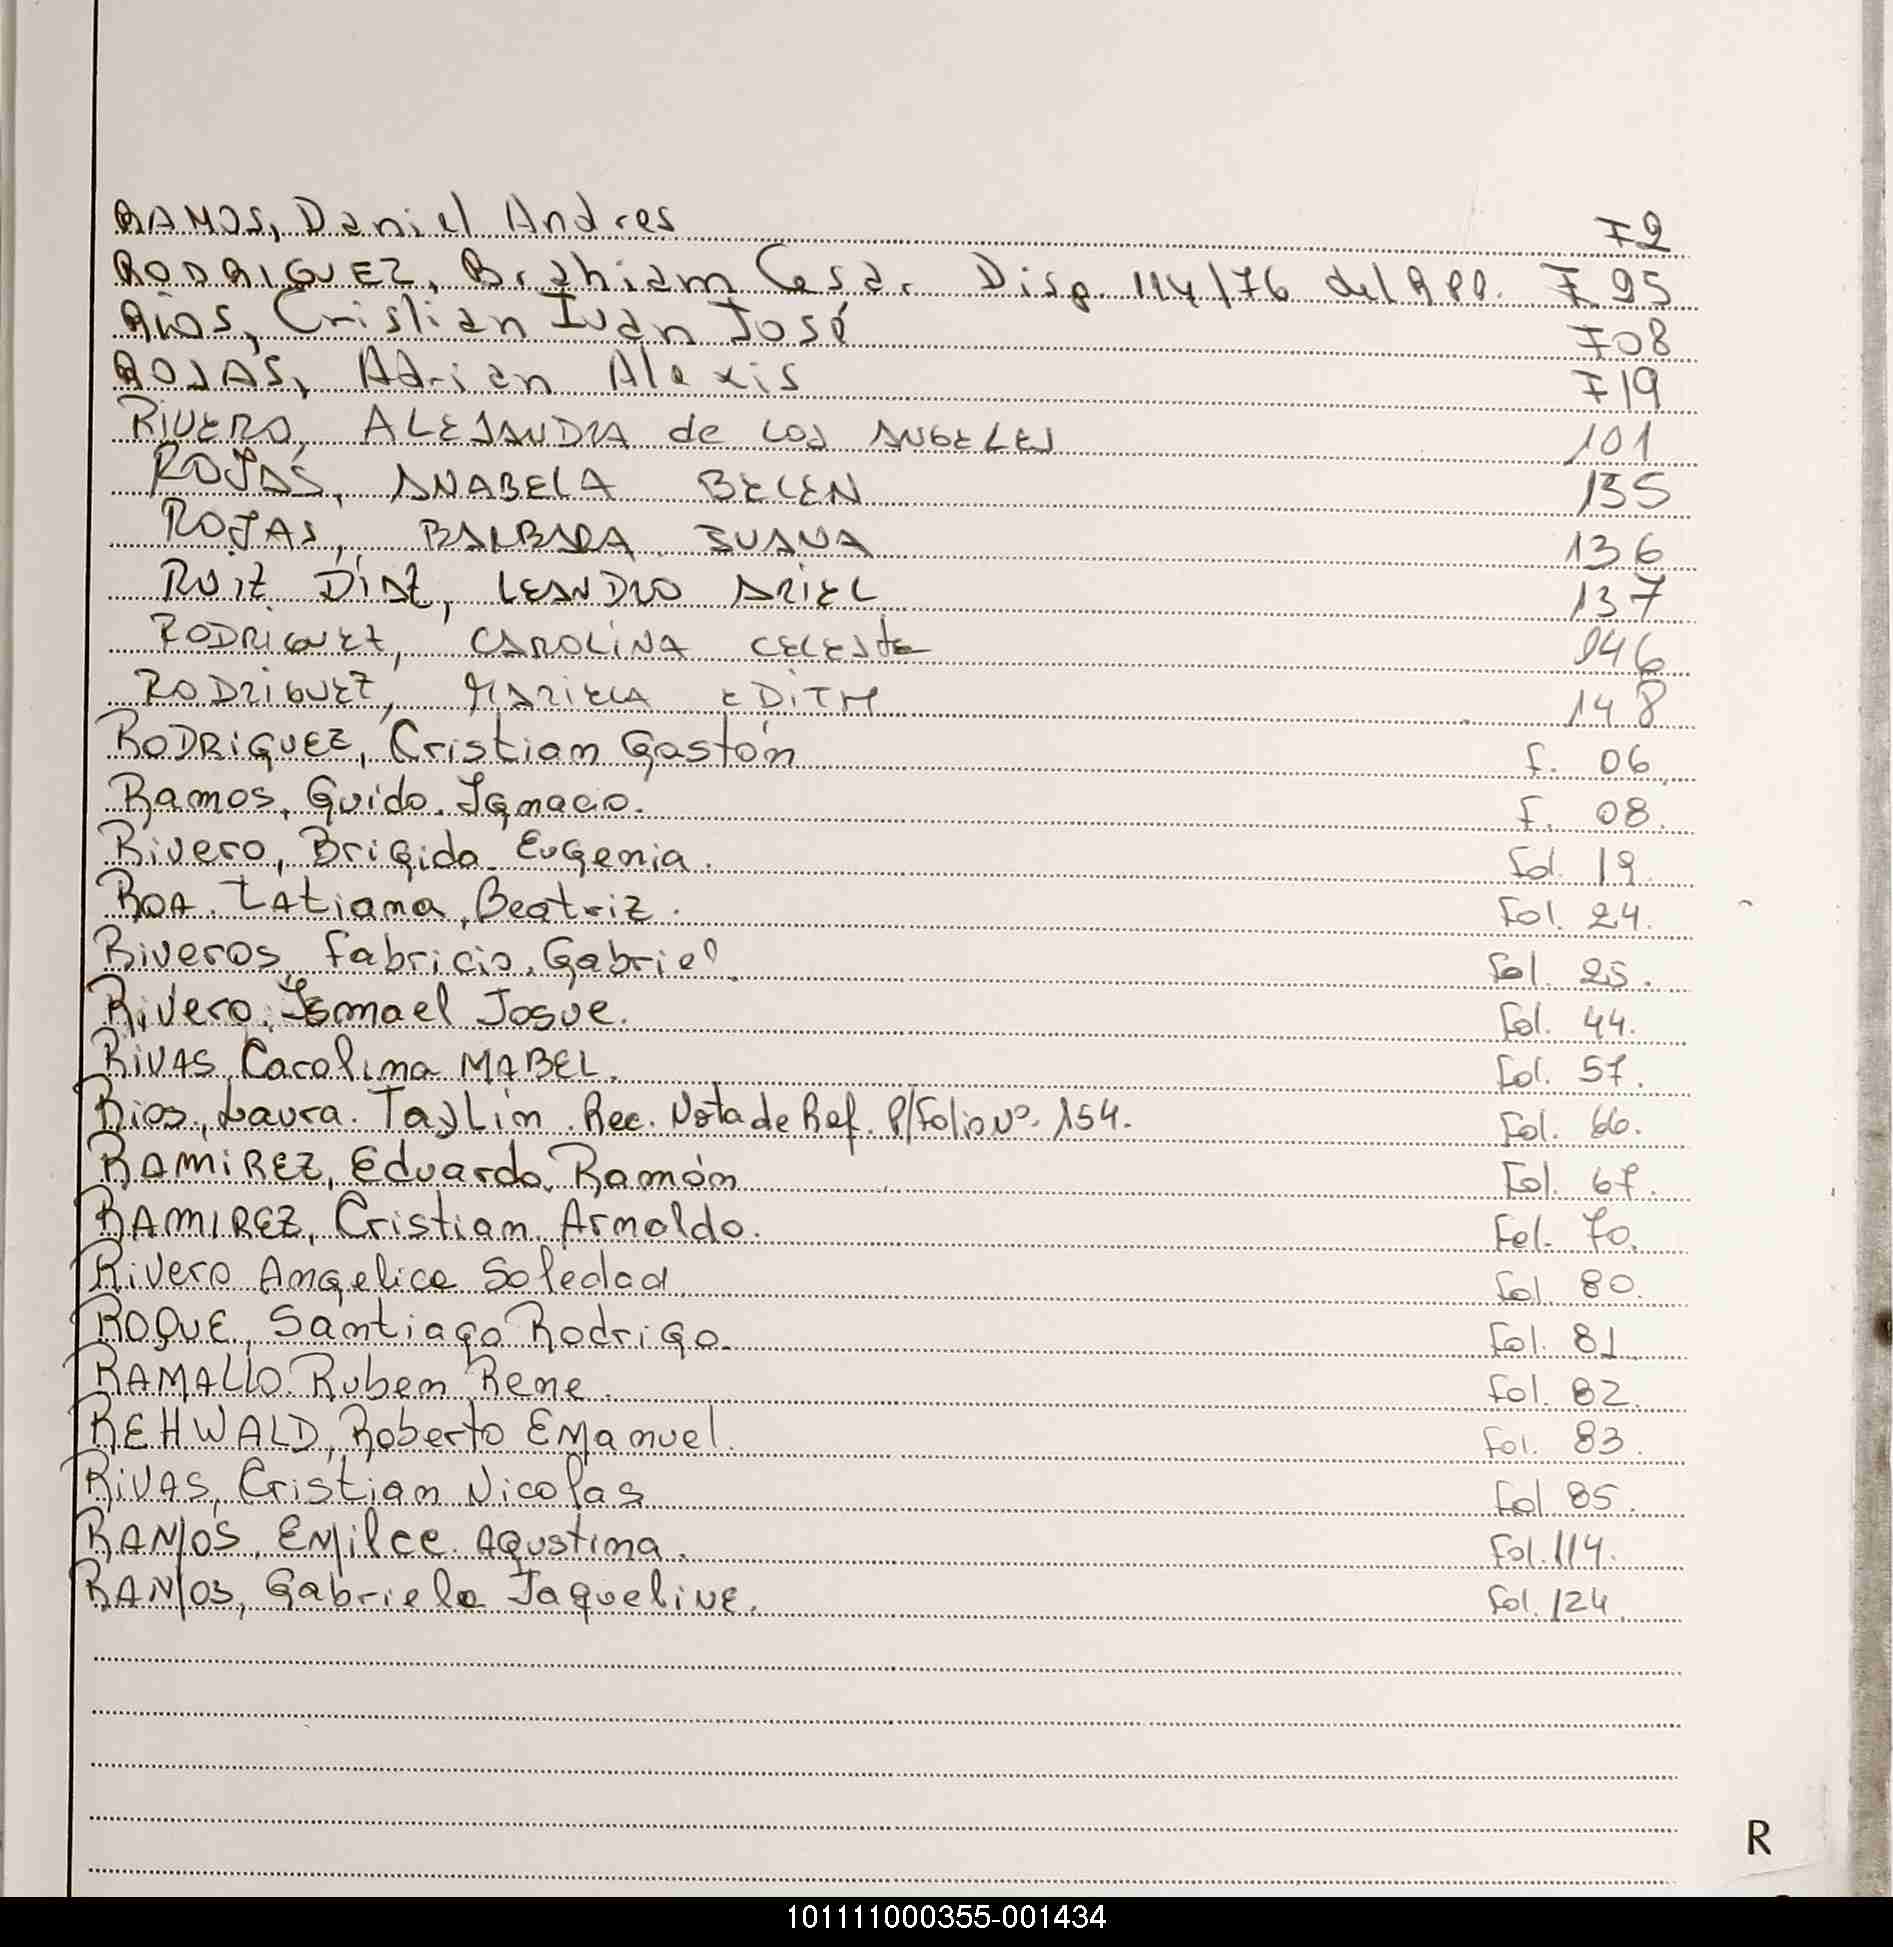 RAMOS, Daniel Andres F2
RODRIGUEZ, Brahiam Cesar Disp. 114/76 del RPP. F 95
Rios, Cristian Ivan José F08
ROJAS, Adrian Alexis F19
RIVERO, ALEJANDRA de LOS ANGELES 101
ROJAS, ANABELA BELEN 135
ROJAS, BARBARA JUANA 136
RUIZ DÍAZ, LEANDRO ARIEL 137
RODRIGUEZ, CAROLINA CELESTE 146
RODRIGUEZ, MARIELA EDITH 148
RODRIGUEZ, Cristian Gastón f. 06
Ramos, Guido Ignacio. f. 08.
Rivero, Brigida Eugenia. Fol. 19.
ROA. TAtiana, Beatriz. Fol. 24.
Riveros, Fabricio, Gabriel. Fol. 25.
Rivero, Ismael Josue. Fol. 44.
RIVAS, Carolina MABEL. Fol. 57.
Rios, Laura. Taylin. Rec. Nota de Ref. P/Folio Nº. 154. Fol. 66.
RAMIREZ, Eduardo, Ramón Fol. 67.
RAMIREZ, Cristian Arnaldo. Fol. 70.
Rivero Angelica Soledad Fol. 80.
ROQUE, Santiago Rodrigo. Fol. 81.
RAMALLO Ruben Rene. Fol. 82.
REHWALD, Roberto EManuel. Fol. 83.
RIVAS, Cristian Nicolas Fol 85.
RAMOS, EMilce Agustina. Fol. 114.
RAMOS, Gabriela Jaqueline. Fol. 124.
R
101111000355-001434